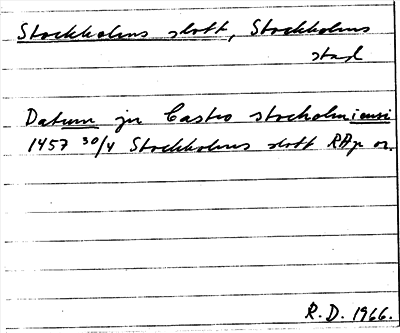 Stockholms slott, Stockholms
stad
Datum jn Castro stocholmiensi
1457 30/4 Stockholms slott RAp or.
R.D. 1966.